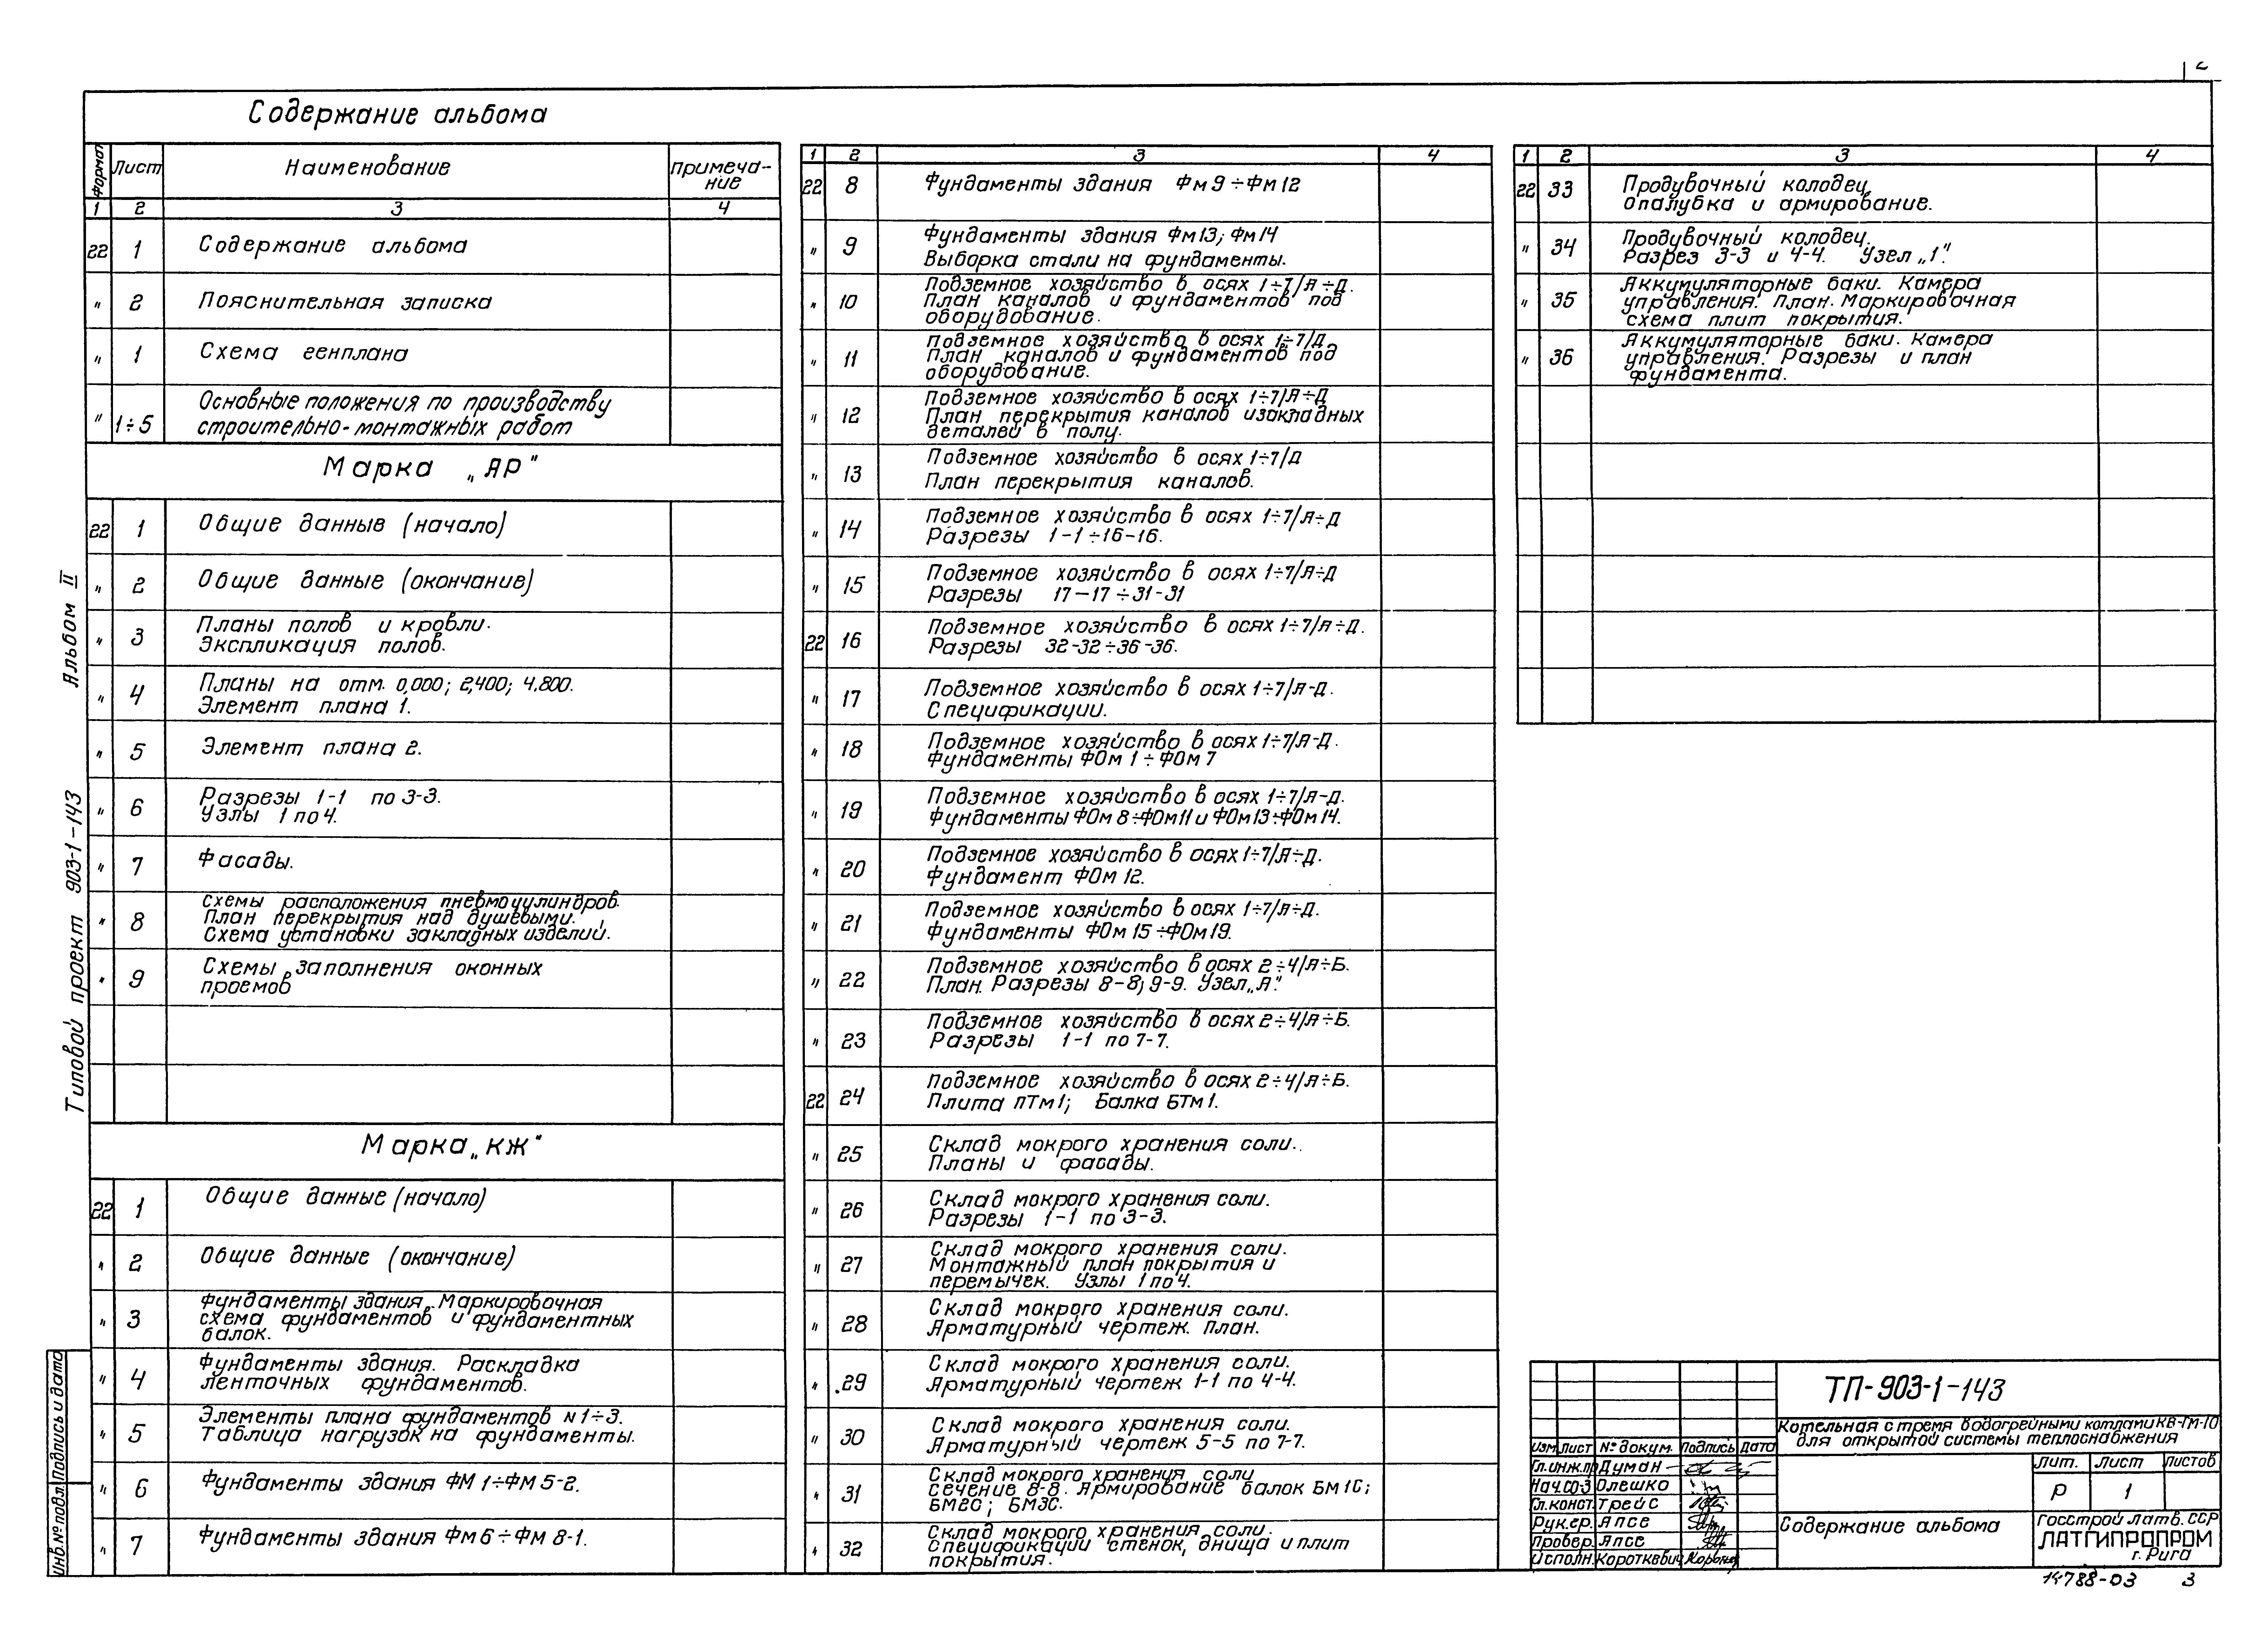 2
Содержание альбома
Формат Лист Наименование Примеча-
ние
1 2 3 4
22 1 Содержание альбома
" 2 Пояснительная записка
" 1 Схема генплана
" 1÷5 Основные положения по производству
строительно-монтажных работ
Марка „АР"
22 1 Общие данные (начало)
" 2 Общие данные (окончание)
" 3 Планы полов и кровли.
Экспликация полов.
" 4 Планы на отм. 0,000; 2,400; 4.800.
Элемент плана 1.
" 5 Элемент плана 2.
" 6 Разрезы 1-1 по 3-3.
Узлы 1 по 4.
" 7 Фасады.
" 8 Схемы расположения пневмоцилиндров.
План перекрытия над душевыми.
Схема установки закладных изделий.
" 9 Схемы заполнения оконных
проемов
Марка „КЖ"
22 1 Общие данные (начало)
" 2 Общие данные (окончание)
" 3 Фундаменты здания. Маркировочная
схема фундаментов и фундаментных
балок.
" 4 Фундаменты здания. Раскладка
ленточных фундаментов.
" 5 Элементы плана фундаментов N1÷3.
Таблица нагрузок на фундаменты.
" 6 Фундаменты здания ФМ 1÷ФМ 5-2.
" 7 Фундаменты здания Фм 6÷Фм 8-1.
1 2 3 4
22 8 Фундаменты здания Фм 9÷Фм 12
" 9 Фундаменты здания Фм 13; Фм 14
Выборка стали на фундаменты.
" 10 Подземное хозяйство в осях 1÷7/А÷Д.
План каналов и фундаментов под
оборудование.
" 11 Подземное хозяйство в осях 1÷7/Д
План каналов и фундаментов под
оборудование.
" 12 Подземное хозяйство в осях 1÷7/А÷Д
План перекрытия каналов и закладных
деталей в полу.
" 13 Подземное хозяйство в осях 1÷7/Д
План перекрытия каналов.
" 14 Подземное хозяйство в осях 1÷7/А÷Д
Разрезы 1-1÷16-16.
" 15 Подземное хозяйство в осях 1÷7/А÷Д
Разрезы 17-17÷31-31
22 16 Подземное хозяйство в осях 1÷7/А÷Д.
Разрезы 32-32÷36-36.
" 17 Подземное хозяйство в осях 1÷7/А-Д.
Спецификации.
" 18 Подземное хозяйство в осях 1÷7/А-Д.
Фундаменты ФОм 1÷ФОм 7
" 19 Подземное хозяйство в осях 1÷7/А-Д.
Фундаменты ФОм 8÷ФОм 11 и ФОм 13÷ФОм 14.
" 20 Подземное хозяйство в осях 1÷7/А÷Д.
Фундамент ФОм 12.
" 21 Подземное хозяйство в осях 1÷7/А÷Д.
Фундаменты ФОм 15÷ФОм 19.
" 22 Подземное хозяйство в осях 2÷4/А÷Б.
План. Разрезы 8-8; 9-9. Узел „А".
" 23 Подземное хозяйство в осях 2÷4/А÷Б.
Разрезы 1-1 по 7-7.
22 24 Подземное хозяйство в осях 2÷4/А÷Б.
Плита ПТм 1; Балка БТм 1.
" 25 Склад мокрого хранения соли.
Планы и фасады.
" 26 Склад мокрого хранения соли.
Разрезы 1-1 по 3-3.
" 27 Склад мокрого хранения соли.
Монтажный план покрытия и
перемычек. Узлы 1 по 4.
" 28 Склад мокрого хранения соли.
Арматурный чертеж. План.
" 29 Склад мокрого хранения соли.
Арматурный чертеж 1-1 по 4-4.
" 30 Склад мокрого хранения соли.
Арматурный чертеж 5-5 по 7-7.
" 31 Склад мокрого хранения соли
Сечение 8-8. Армирование балок БМ1С;
БМ2С; БМ3С.
" 32 Склад мокрого хранения соли.
Спецификации стенок, днища и плит
покрытия.
1 2 3 4
22 33 Продувочный колодец.
Опалубка и армирование.
" 34 Продувочный колодец.
Разрез 3-3 и 4-4. Узел „1".
" 35 Аккумуляторные баки. Камера
управления. План. Маркировочная
схема плит покрытия.
" 36 Аккумуляторные баки. Камера
управления. Разрезы и план
фундамента.
Типовой проект 903-1-143 Альбом II
Инв.№ подл. Подпись и дата
ТП-903-1-143
Котельная с тремя водогрейными котлами КВ-ГМ-10
для открытой системы теплоснабжения
Изм. Лист № докум. Подпись Дата
Гл.инж.пр Думан
Нач.СО-3 Олешко
Гл.конст. Трейс
Рук.гр. Апсе
Провер. Апсе
Исполн. Короткевич
Лит. Лист Листов
Р 1
Содержание альбома
Госстрой Латв. ССР
ЛАТГИПРОПРОМ
г. Рига
14788-03 3